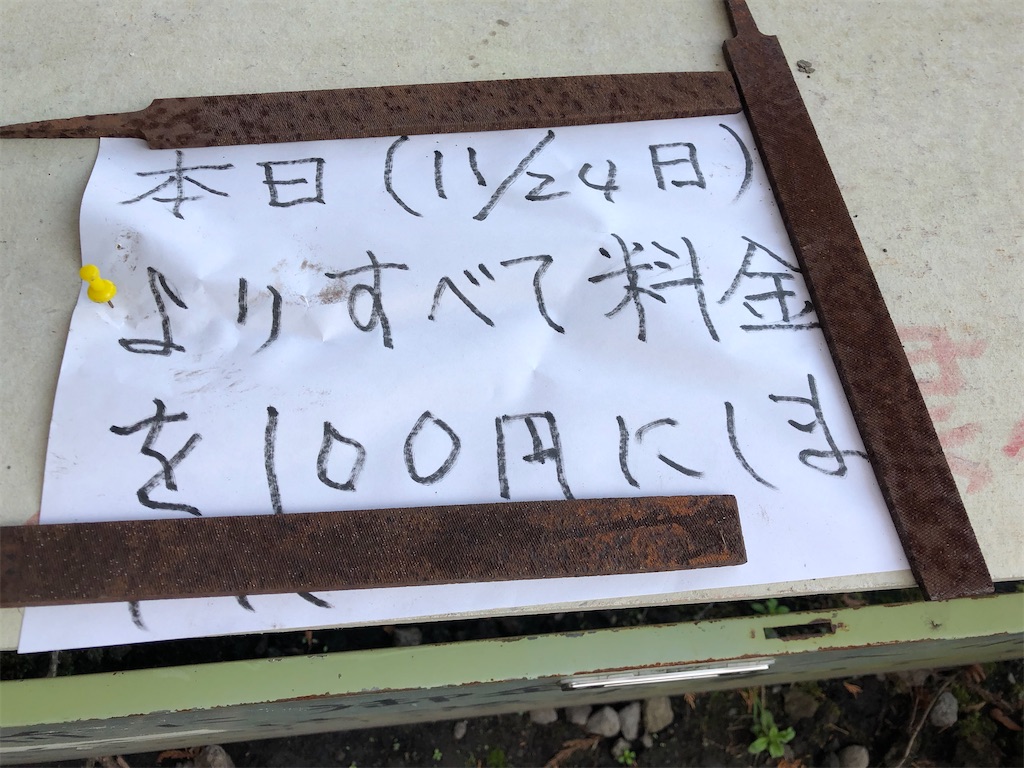 本日(11/24日)
よりすべて料金
を100円にしま